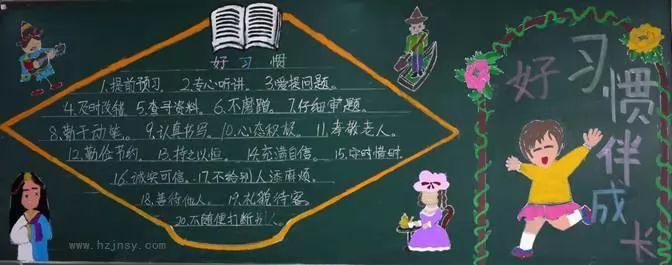 好习惯
1.提前预习。2.专心听讲。3.爱提问题。
4.及时改错。5.查寻资料。6.不磨蹭。7.仔细审题。
8.勤于动笔。9.认真书写。10.心态积极。11.孝敬老人。
12.勤俭节约。13.持之以恒。14.充满自信。15.守时惜时。
16.诚实可信。17.不给别人添麻烦。
18.善待他人。19.礼貌待客。
20.不随便打断别人。
好习惯伴成长
www.hzjnsy.com